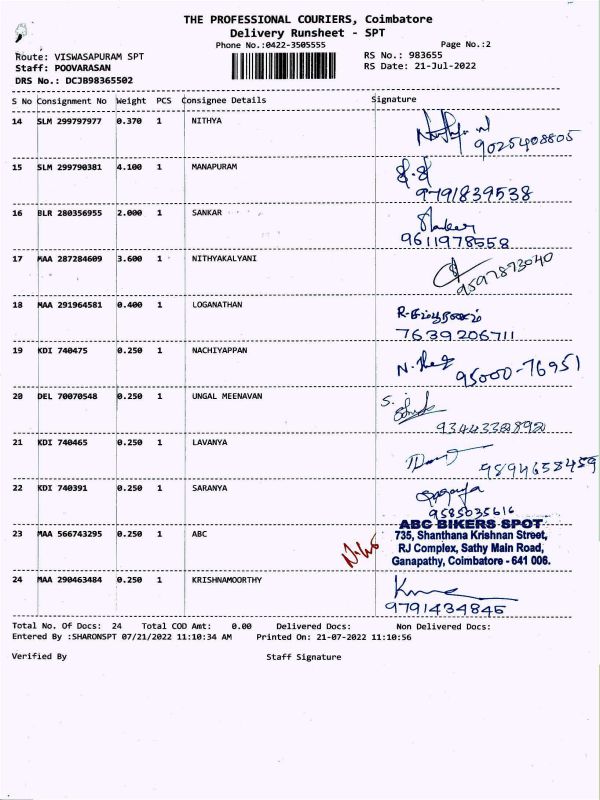 THE PROFESSIONAL COURIERS, Coimbatore
Delivery Runsheet - SPT
Phone No.:0422-3505555 Page No.:2
Route: VISWASAPURAM SPT RS No.: 983655
Staff: POOVARASAN RS Date: 21-Jul-2022
DRS No.: DCJB98365502
S No Consignment No Weight PCS Consignee Details Signature
14 SLM 299797977 0.370 1 NITHYA
9025408805
15 SLM 299790381 4.100 1 MANAPURAM
9791839538
16 BLR 280356955 2.000 1 SANKAR
9611978558
17 MAA 287284609 3.600 1 NITHYAKALYANI
9597873040
18 MAA 291964581 0.400 1 LOGANATHAN
7639206711
19 KDI 740475 0.250 1 NACHIYAPPAN
95000-76951
20 DEL 70070548 0.250 1 UNGAL MEENAVAN
21 KDI 740465 0.250 1 LAVANYA
9894658459
22 KDI 740391 0.250 1 SARANYA
9585035616
ABC BIKERS SPOT
23 MAA 566743295 0.250 1 ABC 735, Shanthana Krishnan Street,
RJ Complex, Sathy Main Road,
Ganapathy, Coimbatore - 641 006.
24 MAA 290463484 0.250 1 KRISHNAMOORTHY
9791434845
Total No. Of Docs: 24 Total COD Amt: 0.00 Delivered Docs: Non Delivered Docs:
Entered By :SHARONSPT 07/21/2022 11:10:34 AM Printed On: 21-07-2022 11:10:56
Verified By Staff Signature